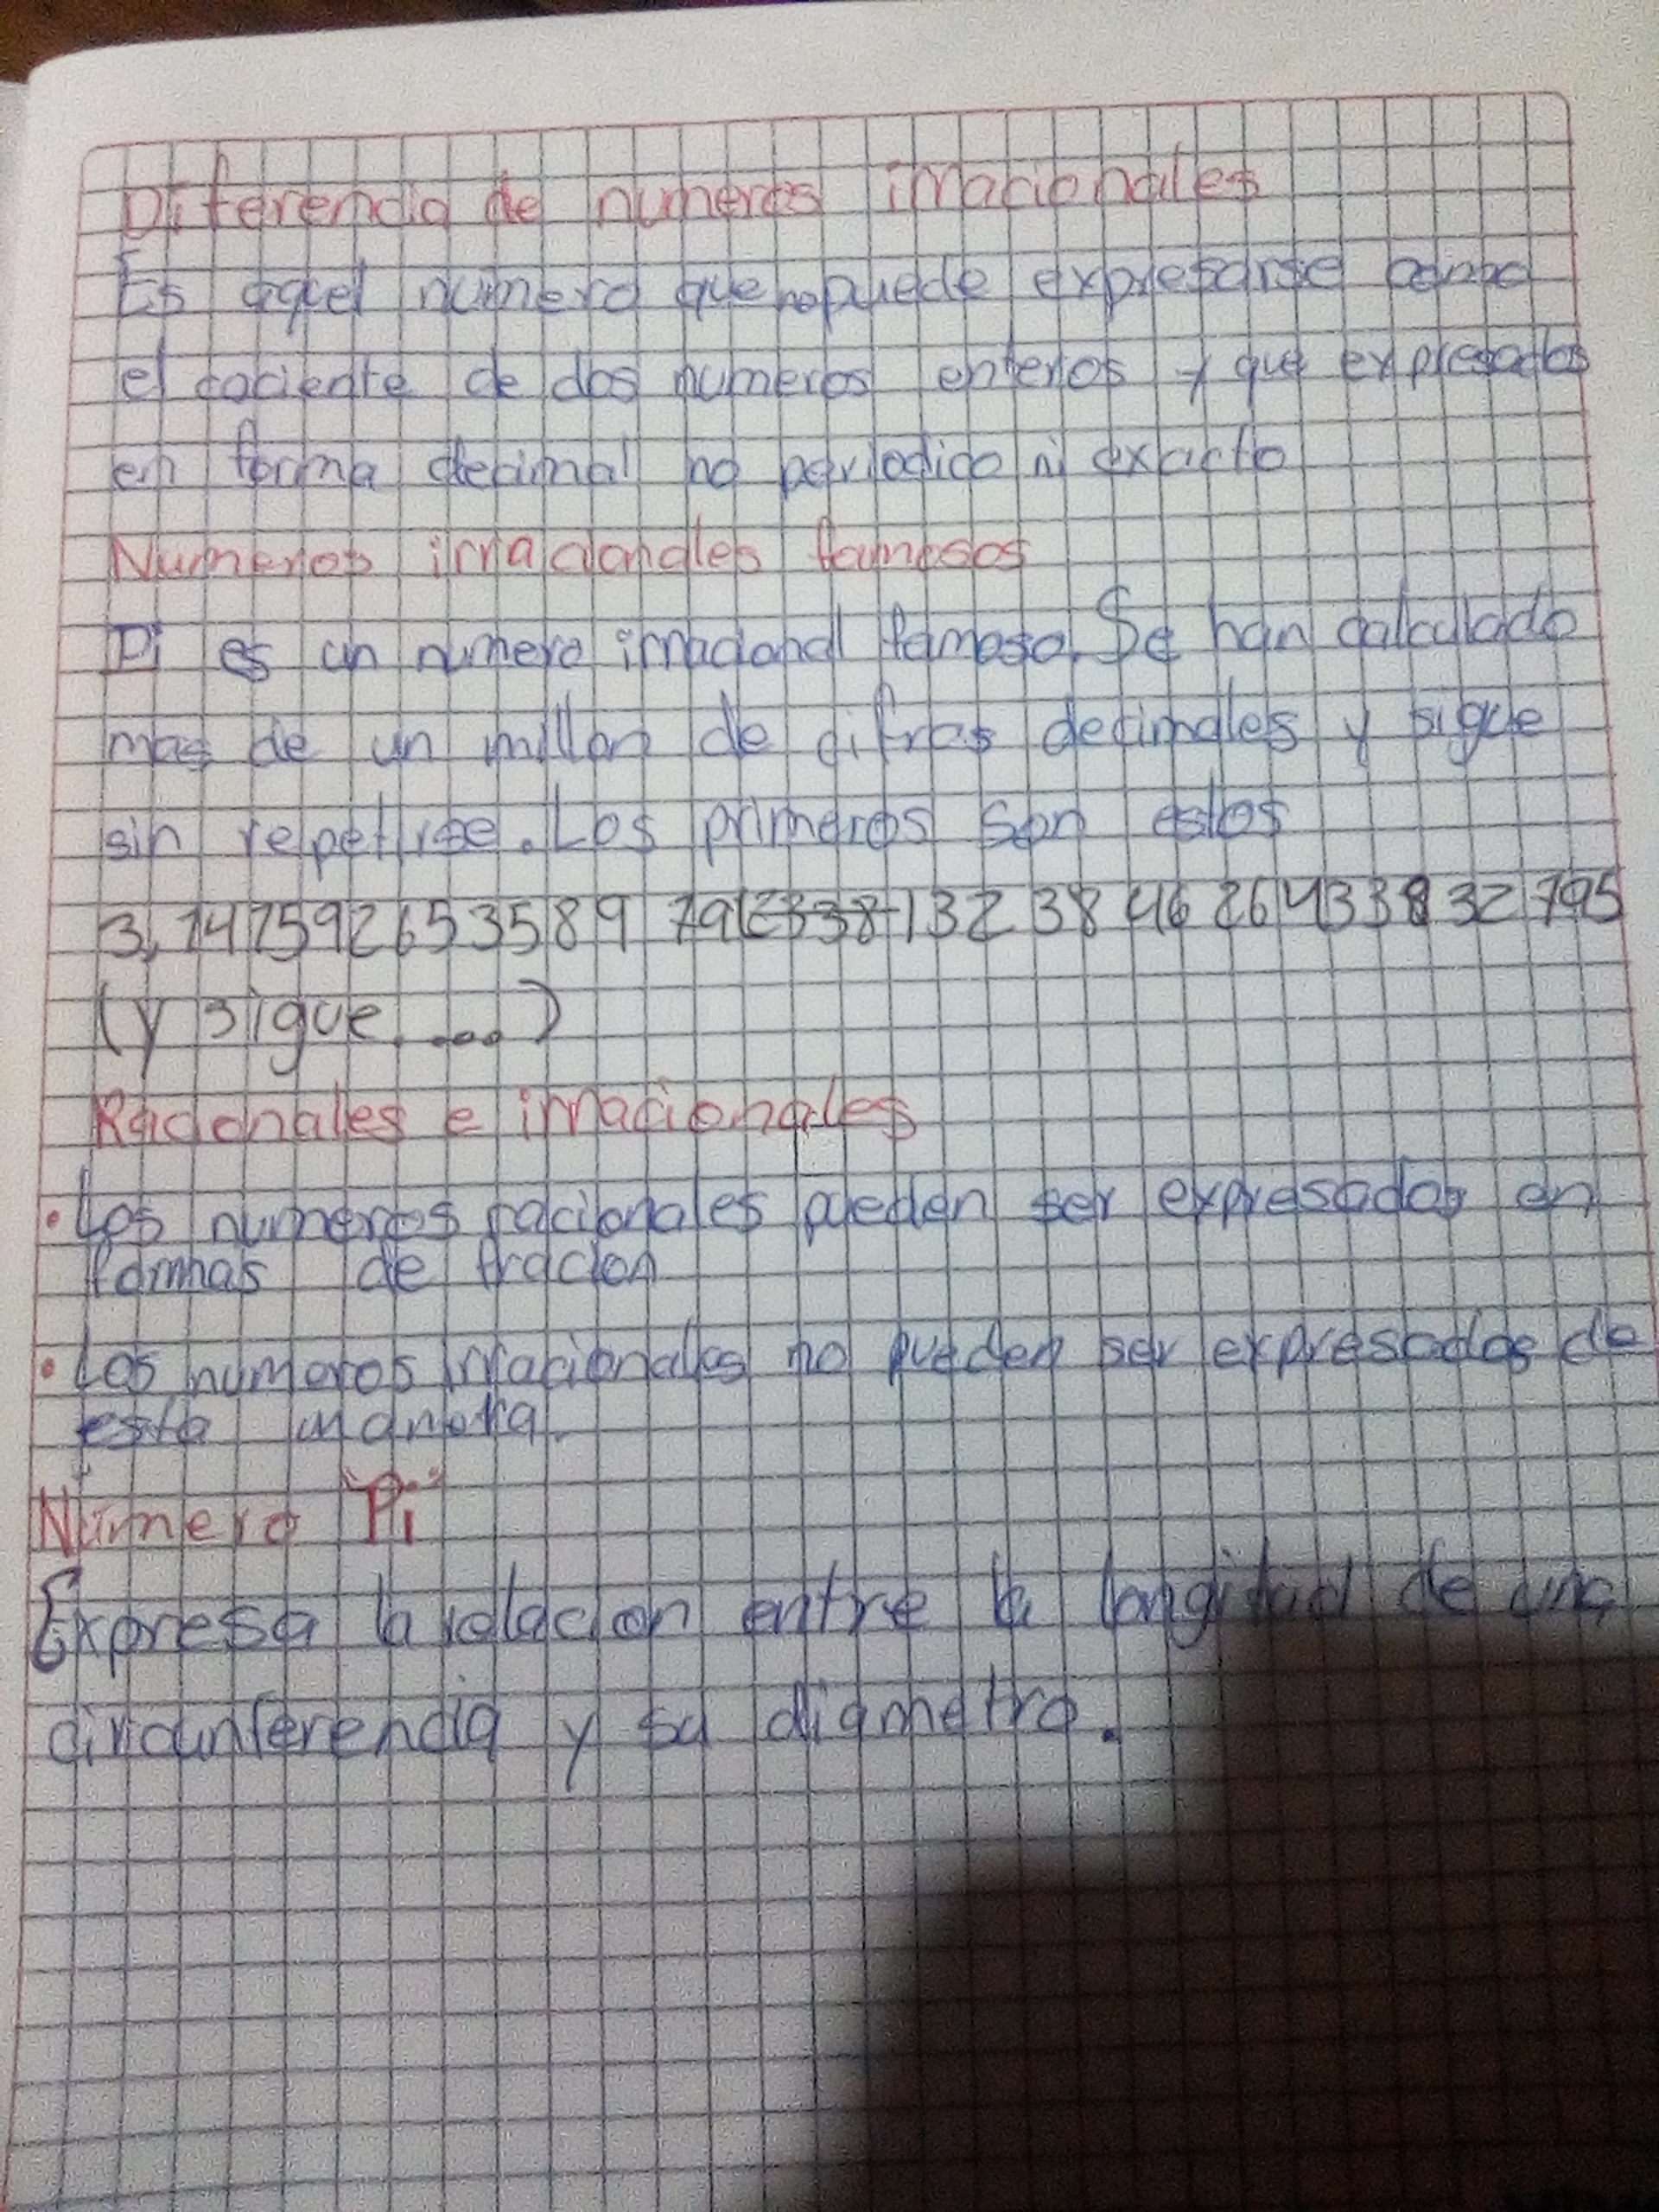 Diferencia de numeros irracionales
Es aquel numero que no puede expresarse como
el cociente de dos numeros enteros y que expresados
en forma decimal no periodico ni exacto
Numeros irracionales famosos
Pi es un numero irracional famoso. Se han calculado
mas de un millon de cifras decimales y sigue
sin repetirse. Los primeros son estos
(y sigue....)
Racionales e irracionales
• Los numeros racionales pueden ser expresados en
formas de fracion
• Los numeros irracionales no pueden ser expresados de
esta manera.
Número "Pi"
Expresa la relacion entre la longitud de una
circunferencia y su diametro.